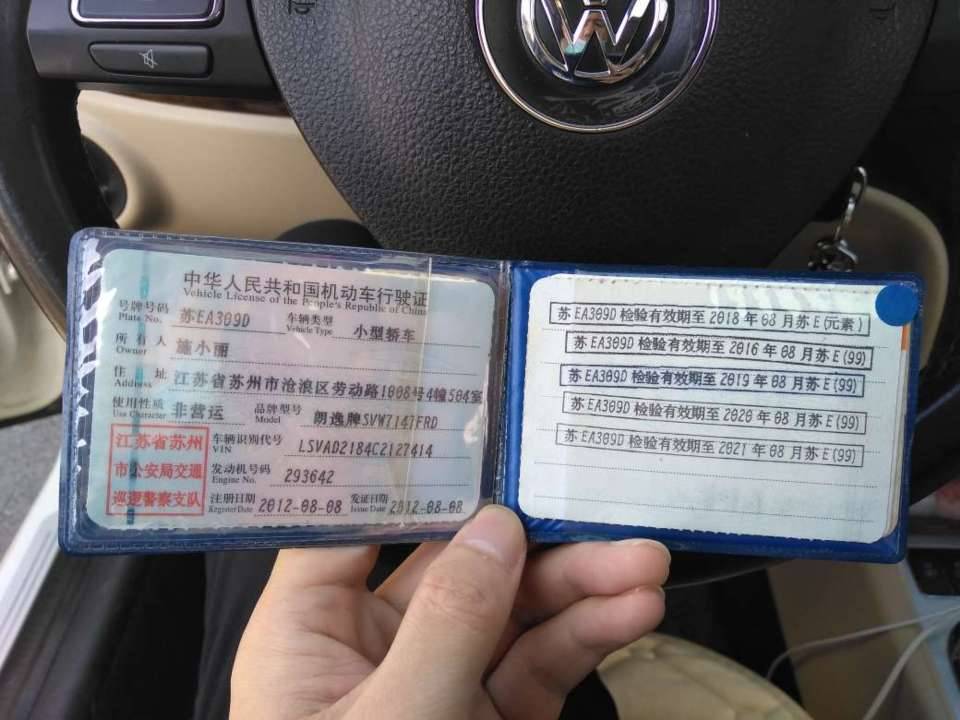 中华人民共和国机动车行驶证
Vehicle License of the People's Republic of China
号牌号码 苏EA309D 车辆类型 小型轿车
Plate No. Vehicle Type
所有人 施小丽
Owner
住址 江苏省苏州市沧浪区劳动路1008号4幢504室
Address
使用性质 非营运 品牌型号 朗逸牌SVW7147FRD
Use Character Model
江苏省苏州
市公安局交通
巡逻警察支队
车辆识别代号 LSVAD2184C2127414
VIN
发动机号码 293642
Engine No.
注册日期 2012-08-08 发证日期 2012-08-08
Register Date Issue Date
苏EA309D检验有效期至2018年08月苏E(元素)
苏EA309D检验有效期至2016年08月苏E(99)
苏EA309D检验有效期至2019年08月苏E(99)
苏EA309D检验有效期至2020年08月苏E(99)
苏EA309D检验有效期至2021年08月苏E(99)